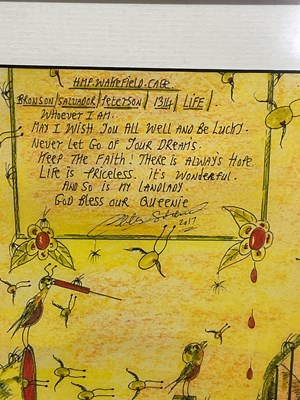 H.M.P. WAKEFIELD. CAGE
BRONSON/SALVADOR/PETERSON/1314/LIFE/.
WHOEVER I AM.
MAY I WISH YOU ALL WELL AND BE LUCKY.
NEVER LET GO OF YOUR DREAMS.
KEEP THE FAITH! THERE IS ALWAYS HOPE
LIFE IS PRICELESS. IT'S WONDERFUL.
AND SO IS MY LANDLADY.
GOD BLESS OUR QUEENIE
2017